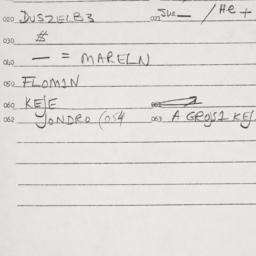 020 DUSZELB3 021 Jue_ / He +
030 $
040 — = MARELN
050 FLOMIN
060 KEJE
062 JONDRO (054 063 A GROJ1 KEJ